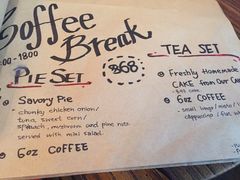 Coffee
Break
:00-18:00
PIE SET
868
TEA SET
Savory Pie
- chunky chicken onion/
tuna, sweet corn/
spinach, mushroom and pine nuts
served with mini salad.
6oz COFFEE
Freshly Homemade
CAKE from our Cake
6oz COFFEE
- small longs / mocha /
cappuccino /